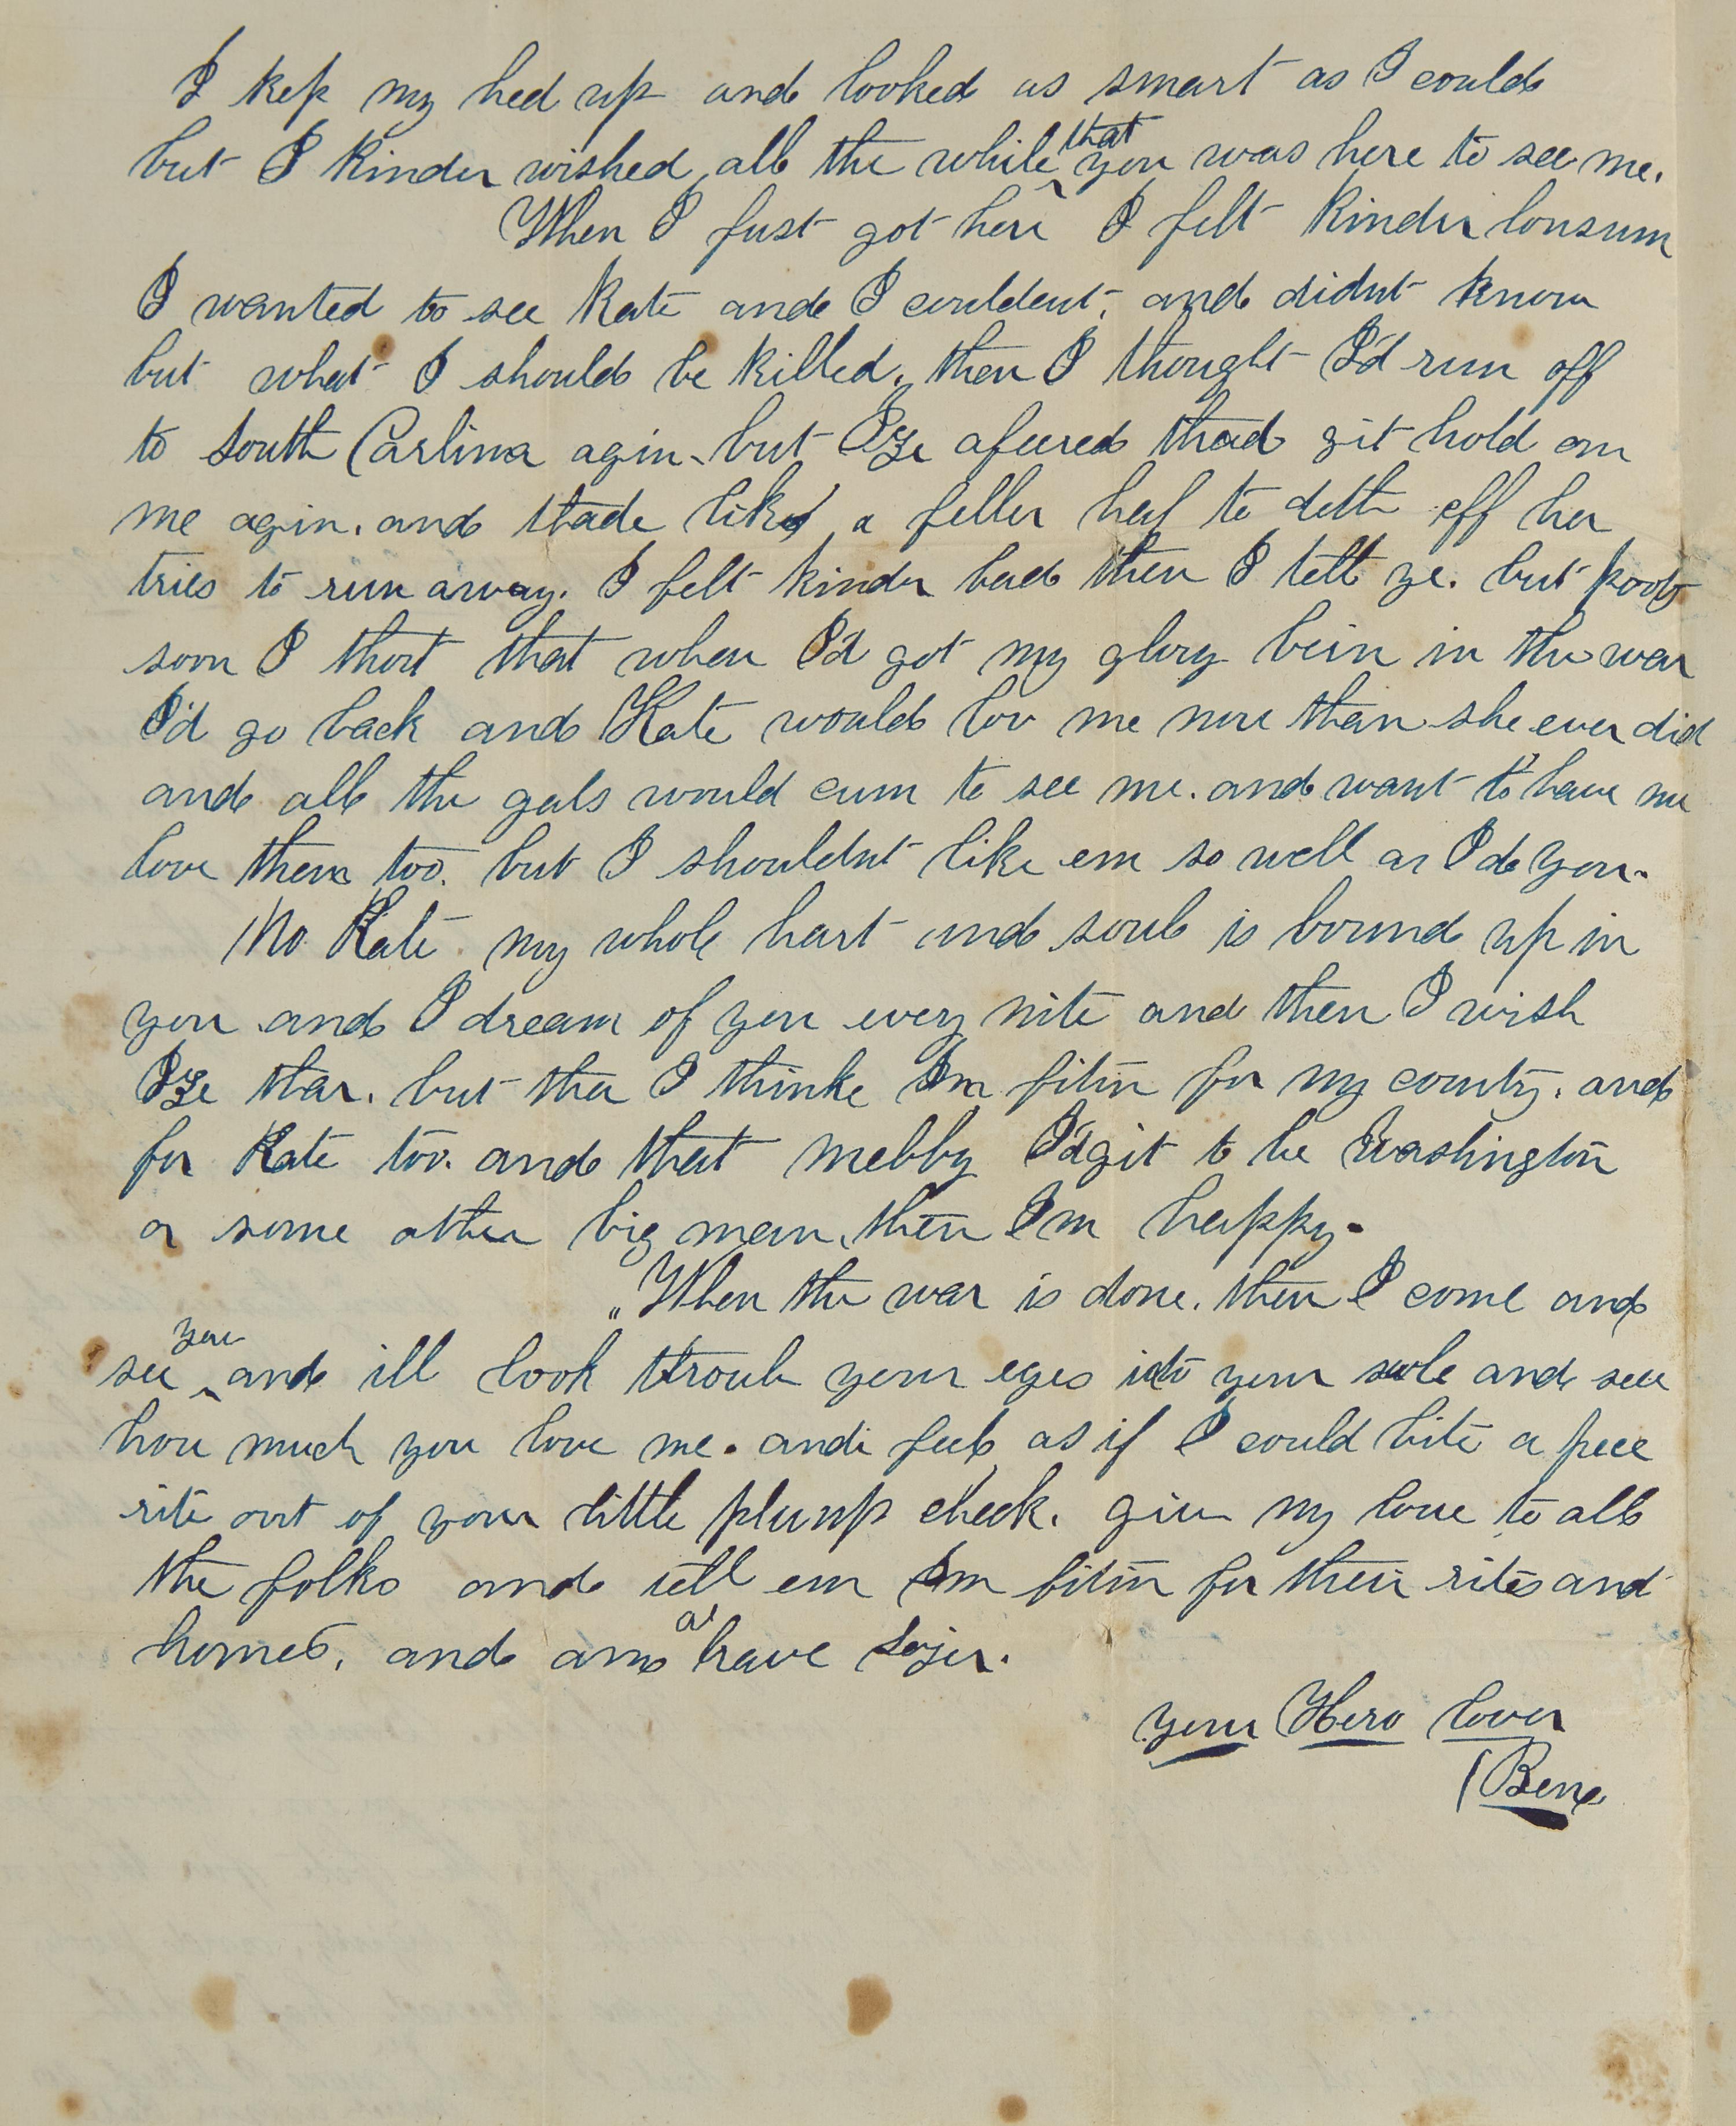 I kep my hed up and looked as smart as I could
but I kinder wished all the while that you was here to see me.
When I fust got here I felt kinder lonsum
I wanted to see Kate and I couldent, and didnt know
but what I should be killed, then I thought I'd run off
to South Carlina agin, but Ize afeered thad git hold on
me agin. and thade like a feller haf to deth eff her
tries to run away. I felt kinder bad then I tell ye. but pooty
soon I thort that when I'd got my glory bein in the war
I'd go back and Kate would lov me more than she ever did
and all the gals would cum to see me. and want to have me
love them too. but I shouldnt like em so well as I do you.
No Kate my whole hart and soul is bound up in
you and I dream of you every nite and then I wish
Ize thar. but then I thinke Im fitin for my county. and
for Kate too. and that mebby I'd git to be Washington
or some other big man, then Im happy.
"When the war is done. then I come and
see you and ill look throuh your eyes into your sole and see
how much you love me. and i feel as if I could bite a peee
rite out of your little plump cheek. give my love to all
the folks and tell em Im fitin for their rites and
homes, and am a brave sojer.
your Hero lover
Ben